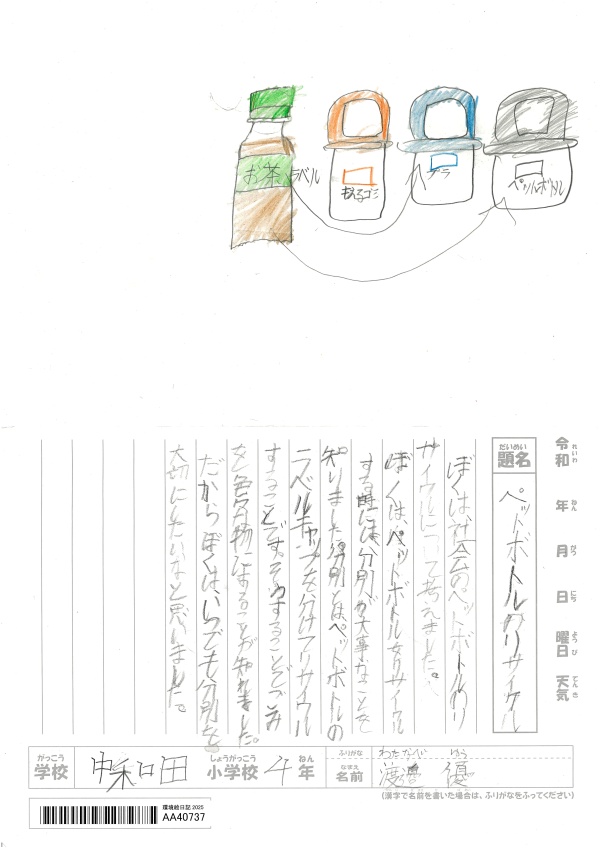 お茶
ラベル
もえるゴミ
プラ
ペットボトル
令和 年 月 日 曜日 天気
れいわ ねん がつ にち ようび てんき
だいめい
題名
ペットボトルのリサイクル
ぼくは、社会のペットボトルのリ
サイクルについて考えました。
ぼくは、ペットボトルをリサイクル
する時には、分別が大事なことを
知りました。分別とは、ペットボトルの
ラベルキャップを分けてリサイクル
することです。そうすることでごみ
を
物によることが知れました。
だからぼくは、いつでも分別を
大切にしたいなと思いました。
がっこう
学校
中和田
しょうがっこう
小学校
4
ねん
年
ふりがな
わたなべ ゆう
なまえ
名前
渡邉 優
(漢字で名前を書いた場合は、ふりがなをふってください)
環境絵日記 2025
AA40737